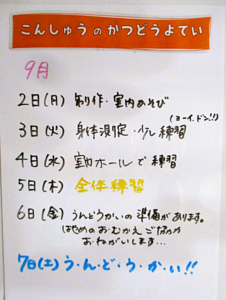 こんしゅうのかつどうよてい
9月
2日(月) 制作・室内あそび
(ヨーイ、ドン!!)
3日(火) 身体測定・少し練習
4日(水) 室内ホールで練習
5日(木) 全体練習
6日(金) うんどうかいの準備があります。
はやめのおむかえ ご協力
おねがいします…
7日(土) う・ん・ど・う・か・い!!